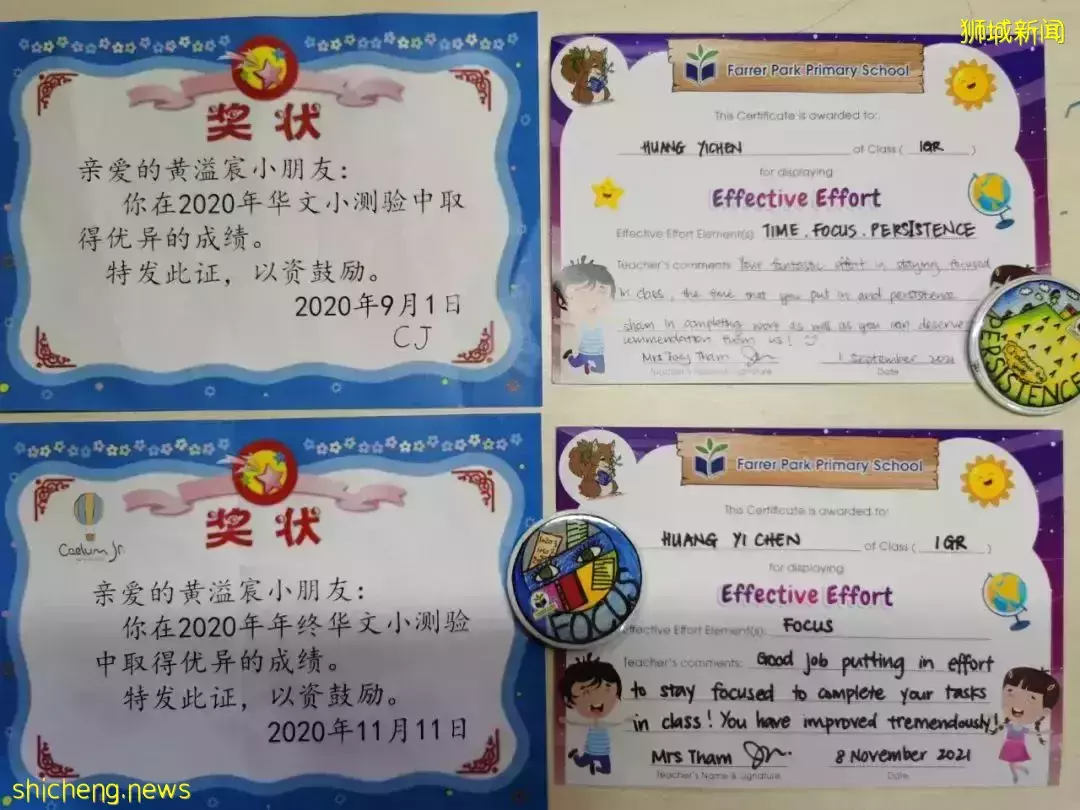 狮城新闻
奖状
亲爱的黄溢宸小朋友：
你在2020年华文小测验中取
得优异的成绩。
特发此证，以资鼓励。
2020年9月1日
CJ
Farrer Park Primary School
This Certificate is awarded to:
HUANG YICHEN of Class ( 1GR )
for displaying
Effective Effort
Effective Effort Element(s): TIME . FOCUS . PERSISTENCE
Teacher's comments: Your fantastic effort in staying focused
in class, the time that you put in and persistence
shown in completing work as well as you can deserve
commendation from us!
Mrs Tham 1 September 2021
Teacher's Name & Signature Date
PERSISTENCE
Caelum Jr.
奖状
亲爱的黄溢宸小朋友：
你在2020年年终华文小测验
中取得优异的成绩。
特发此证，以资鼓励。
2020年11月11日
FOCUS
Farrer Park Primary School
This Certificate is awarded to:
HUANG YI CHEN of Class ( 1GR )
for displaying
Effective Effort
Effective Effort Element(s): FOCUS
Teacher's comments: Good job putting in effort
to stay focused to complete your tasks
in class! You have improved tremendously!
Mrs Tham 8 November 2021
Teacher's Name & Signature Date
shicheng.news